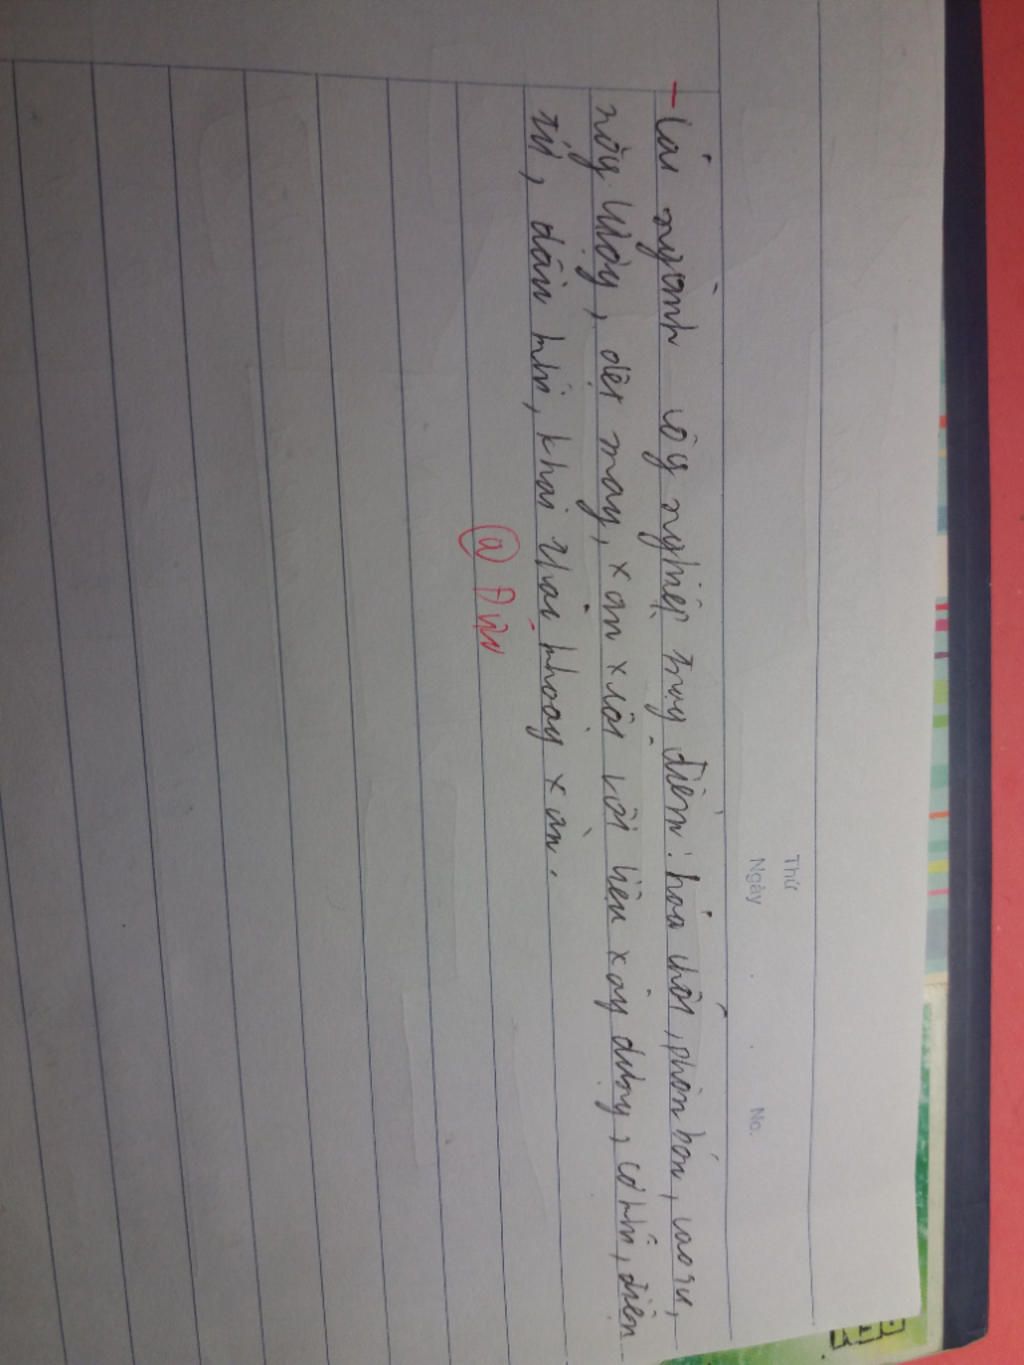 Thứ
Ngày . . No.
- Các ngành công nghiệp trọng điểm: hóa chất, phân bón, cao su,
năng lượng, dệt may, sản xuất vật liệu xây dựng, cơ khí, điện
tử, dầu khí, khai thác khoáng sản.
a Đức